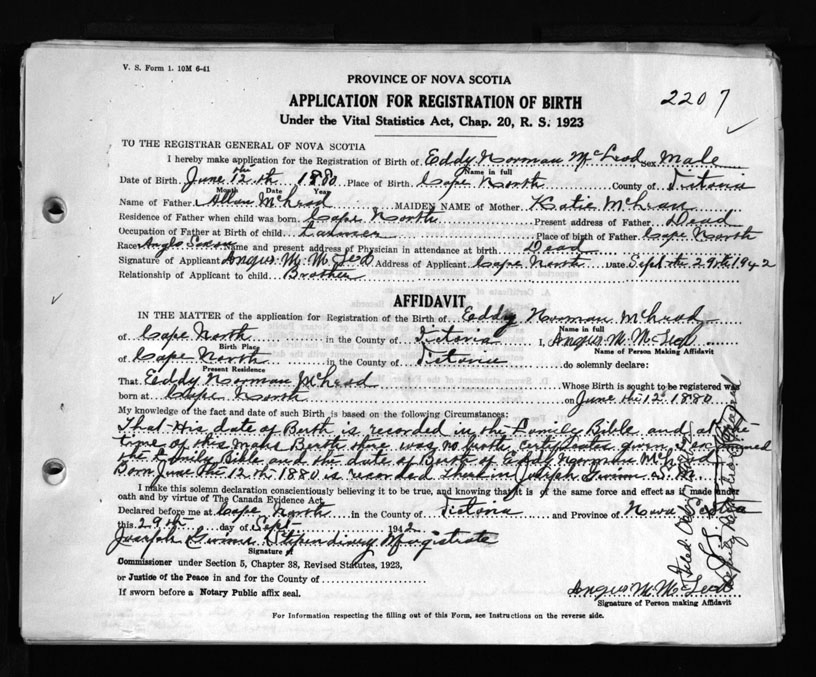 V. S. Form 1. 10M 6-41
PROVINCE OF NOVA SCOTIA
APPLICATION FOR REGISTRATION OF BIRTH
2207
Under the Vital Statistics Act, Chap. 20, R. S. 1923
TO THE REGISTRAR GENERAL OF NOVA SCOTIA
I hereby make application for the Registration of Birth of Eddy Norman McLeod Sex Male
Name in full
Date of Birth June the 12th 1880 Place of Birth Cape North County of Victoria
Month Date Year
Name of Father Allan McLeod MAIDEN NAME of Mother Katie McLean
Residence of Father when child was born Cape North Present address of Father Dead
Occupation of Father at Birth of child Farmer Place of birth of Father Cape North
Race Anglo Saxon Name and present address of Physician in attendance at birth Dead
Signature of Applicant Angus M. McLeod Address of Applicant Cape North Date Sept the 29th 1942
Relationship of Applicant to child Brother
AFFIDAVIT
IN THE MATTER of the application for Registration of the Birth of Eddy Norman McLeod
Name in full
of Cape North in the County of Victoria I, Angus M. McLeod
Birth Place Name of Person Making Affidavit
of Cape North in the County of Victoria do solemnly declare:
Present Residence
That Eddy Norman McLeod Whose Birth is sought to be registered was
born at Cape North on June the 12th 1880
My knowledge of the fact and date of such Birth is based on the following Circumstances:
That His date of Birth is recorded in the Family Bible and at the
time of this Mans Birth there was no birth Certificates given I examined
the Family Bible and the date of Birth of Eddy Norman McLeod
Born June the 12th 1880 is recorded therein Joseph Gwinn S. M.
I make this solemn declaration conscientiously believing it to be true, and knowing that it is of the same force and effect as if made under
oath and by virtue of The Canada Evidence Act.
Declared before me at Cape North in the County of Victoria and Province of Nova Scotia
this 29th day of Sept 1942
Joseph Gwinn Stipendiary Magistrate
Signature of
Commissioner under Section 5, Chapter 38, Revised Statutes, 1923,
or Justice of the Peace in and for the County of
If sworn before a Notary Public affix seal.
Angus M. McLeod
Signature of Person making Affidavit
For Information respecting the filling out of this Form, see Instructions on the reverse side.
Filed Oct